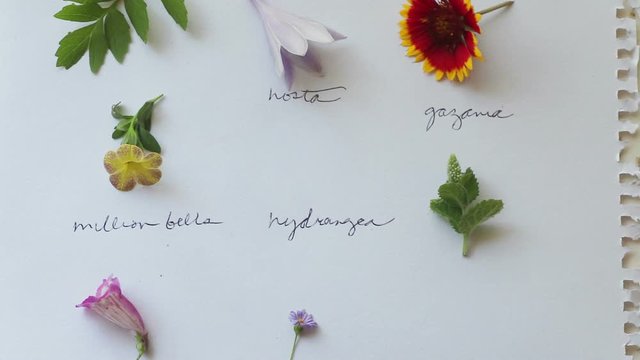 hosta
gazania
million bells
hydrangea